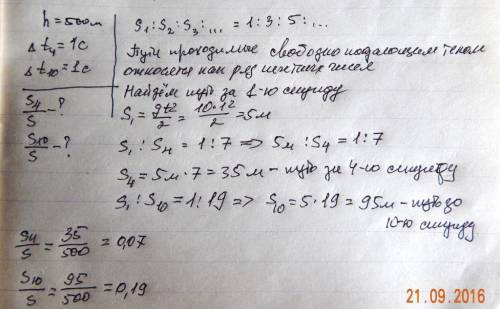 h = 500м
Δt₄ = 1с
Δt₁₀ = 1с
S₄/S - ?
S₁₀/S - ?
S₁ : S₂ : S₃ : ... = 1 : 3 : 5 : ...
Пути проходимые свободно падающим телом
относятся как ряд нечетных чисел
Найдём путь за 1-ю секунду
S₁ = gt²/2 = 10·1²/2 = 5м
S₁ : S₄ = 1:7 => 5м : S₄ = 1:7
S₄ = 5м · 7 = 35м - путь за 4-ю секунду
S₁ : S₁₀ = 1:19 => S₁₀ = 5·19 = 95м - путь за
10-ю секунду
S₄/S = 35/500 = 0,07
S₁₀/S = 95/500 = 0,19
21.09.2016